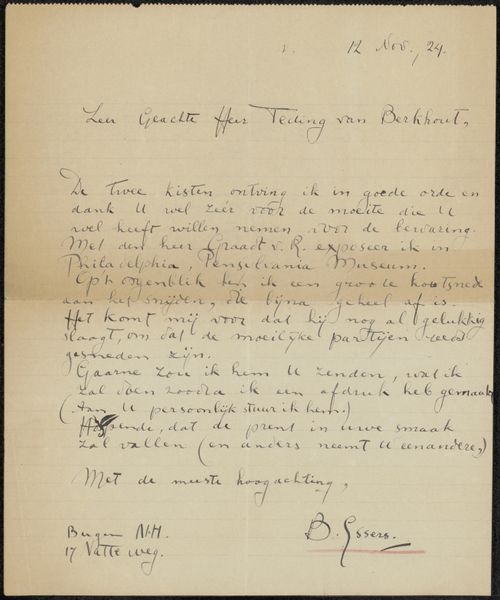 12 Nov., 24.
Zeer Geachte Heer Teding van Berkhout,
De twee kisten ontving ik in goede orde en
dank U wel zéér voor de moeite die U
wel heeft willen nemen voor de bewaring.
Met den heer Graadt v. R. exposeer ik in
Philadelphia, Pensilvania Museum.
Op't oogenblik ben ik een groote houtsnede
aan het snijden, die bijna geheel af is.
Het komt mij voor dat hij nog al gelukkig
slaagt, om dat de moeilijke partijen reeds
gesneden zijn.
Gaarne zou ik hem U zenden, wat ik
zal doen zoodra ik een afdruk heb gemaakt
(Aan U persoonlijk stuur ik hem.)
Hopende, dat de prent in uwe smaak
zal vallen (en anders neemt U een andere,)
Met de meeste hoogachting,
B. Essers.
Bergen N.H.
17 Natte weg.